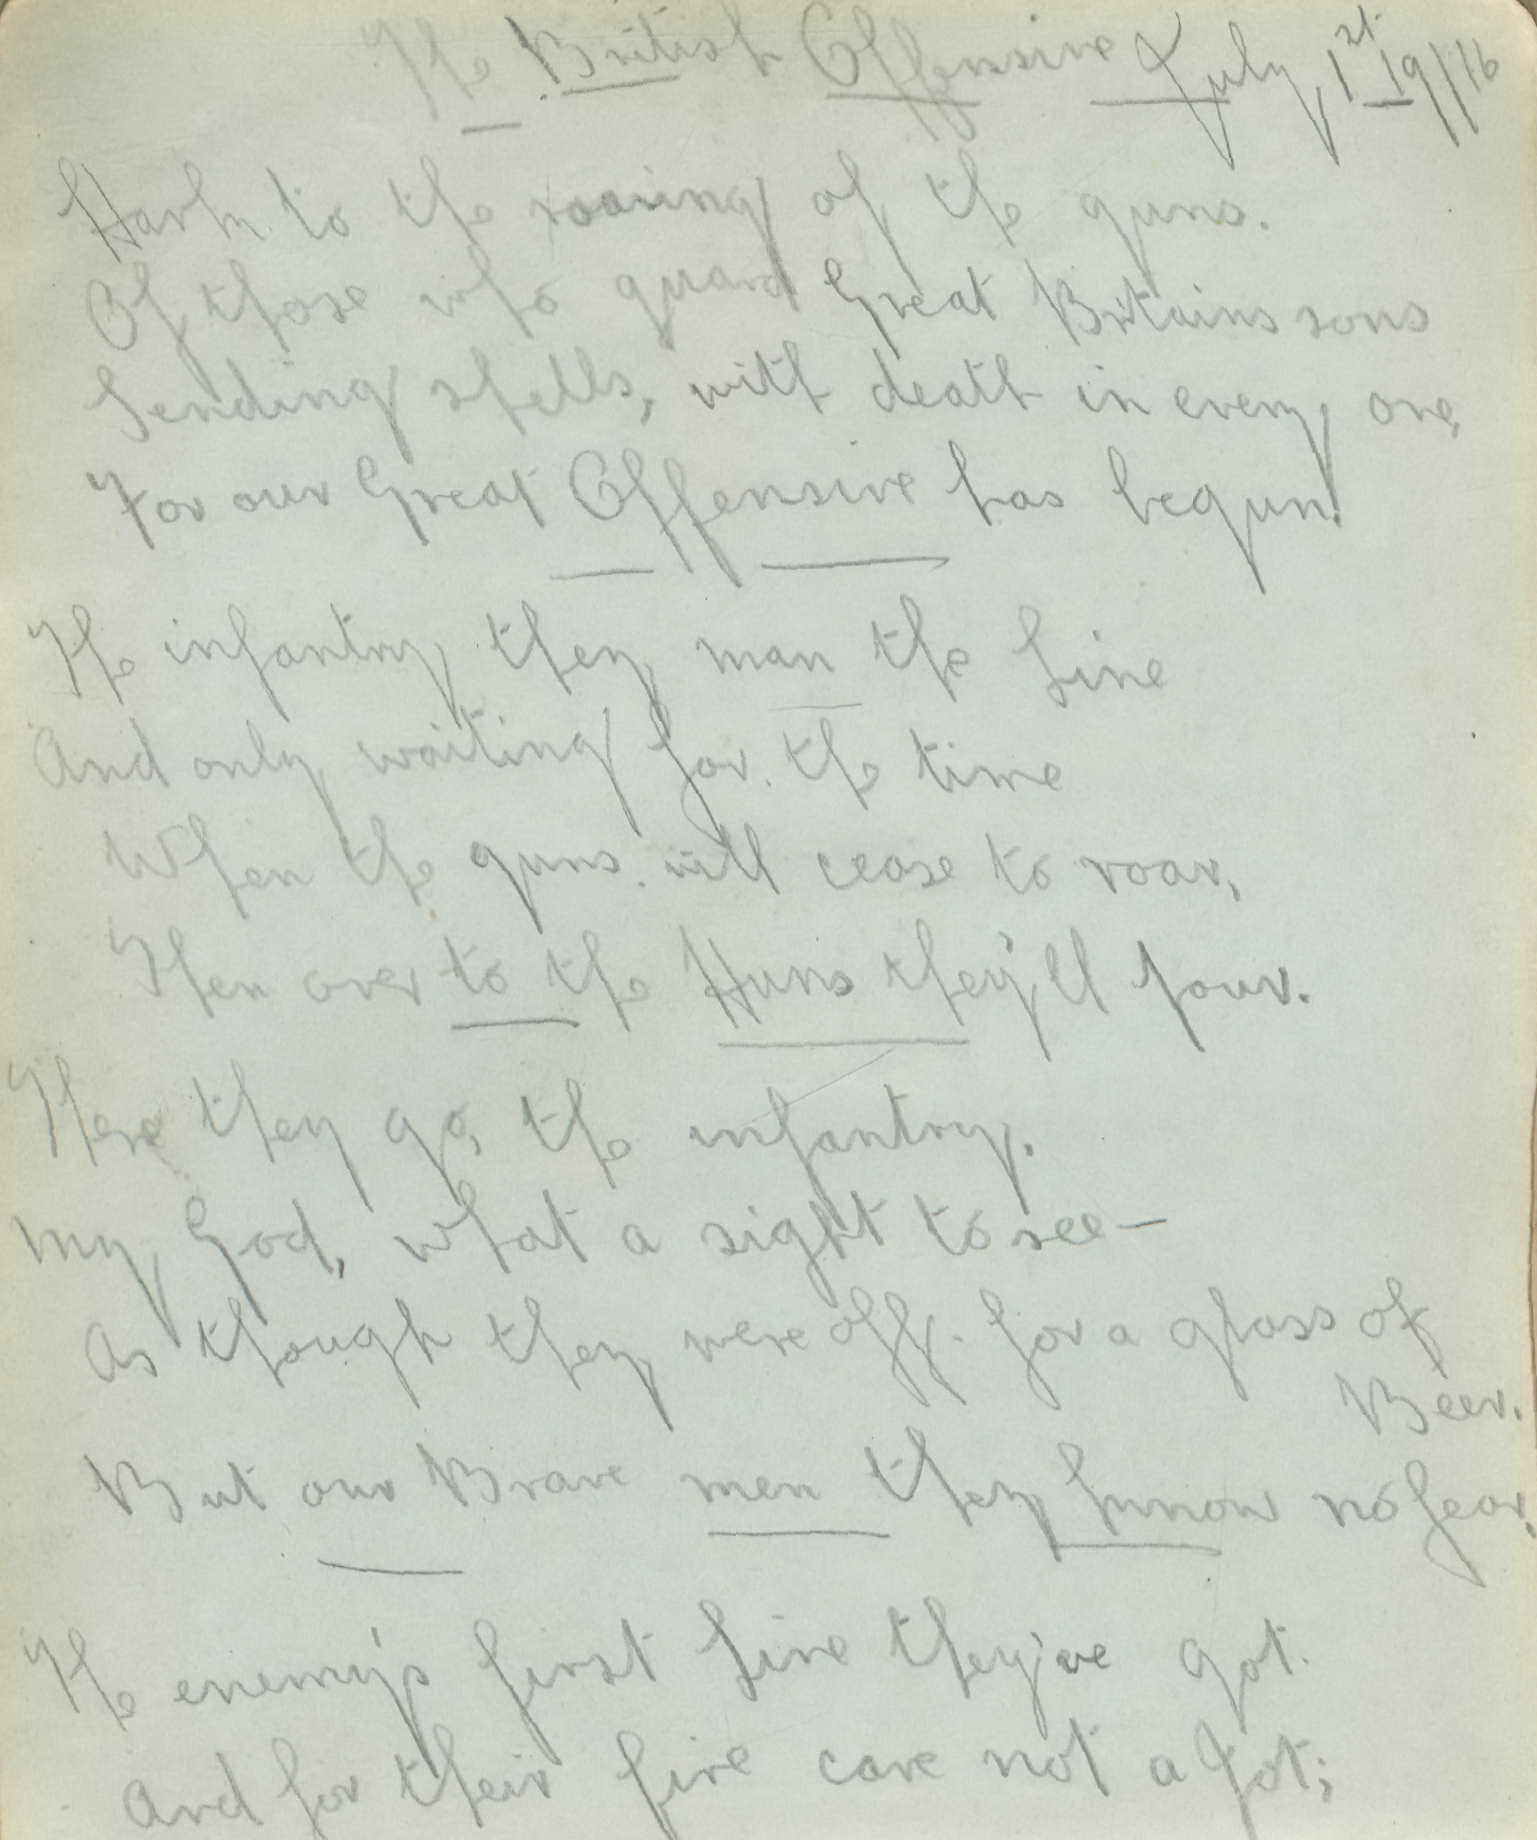 The British Offensive July 1st 19/16
Hark to the roaring of the guns.
Of those who guard Great Britains sons
Sending shells, with death in every one,
For our Great Offensive has begun.
The infantry they man the Line
And only waiting for the time
When the guns will cease to roar,
Then over to the Huns they'll pour.
There they go, the infantry.
My God, what a sight to see —
As though they were off for a glass of
Beer.
But our Brave men they know no fear,
The enemy's first Line they've got.
And for their fire care not a jot;